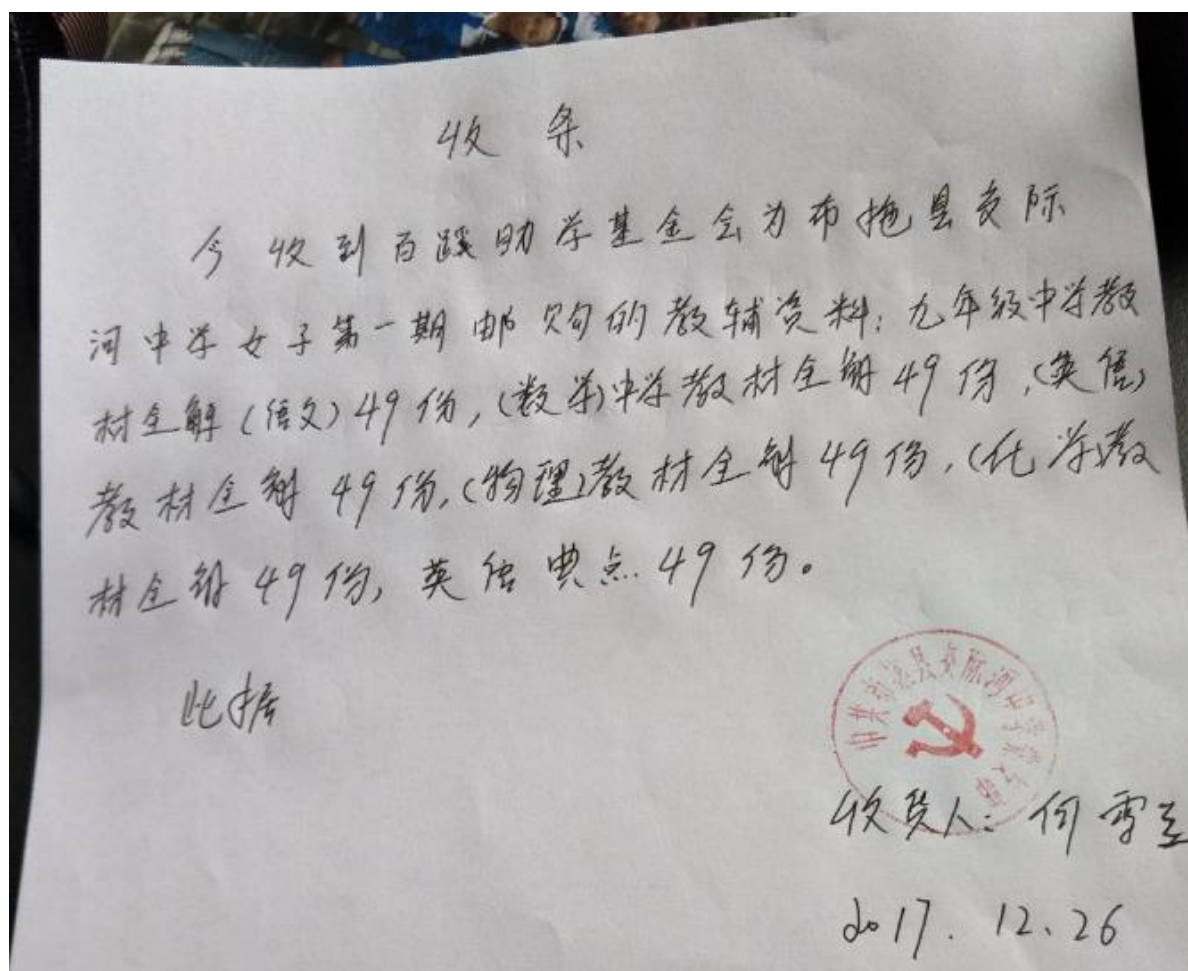 收 条
今收到百蹊助学基金会为布拖县交际
河中学女子第一期邮购的教辅资料:九年级中学教
材全解(语文)49份,(数学)中学教材全解49份,(英语)
教材全解49份,(物理)教材全解49份,(化学)教
材全解49份,英语典点49份。
此据
中共布拖县交际河中学党支部
收货人:何雪兰
2017.12.26